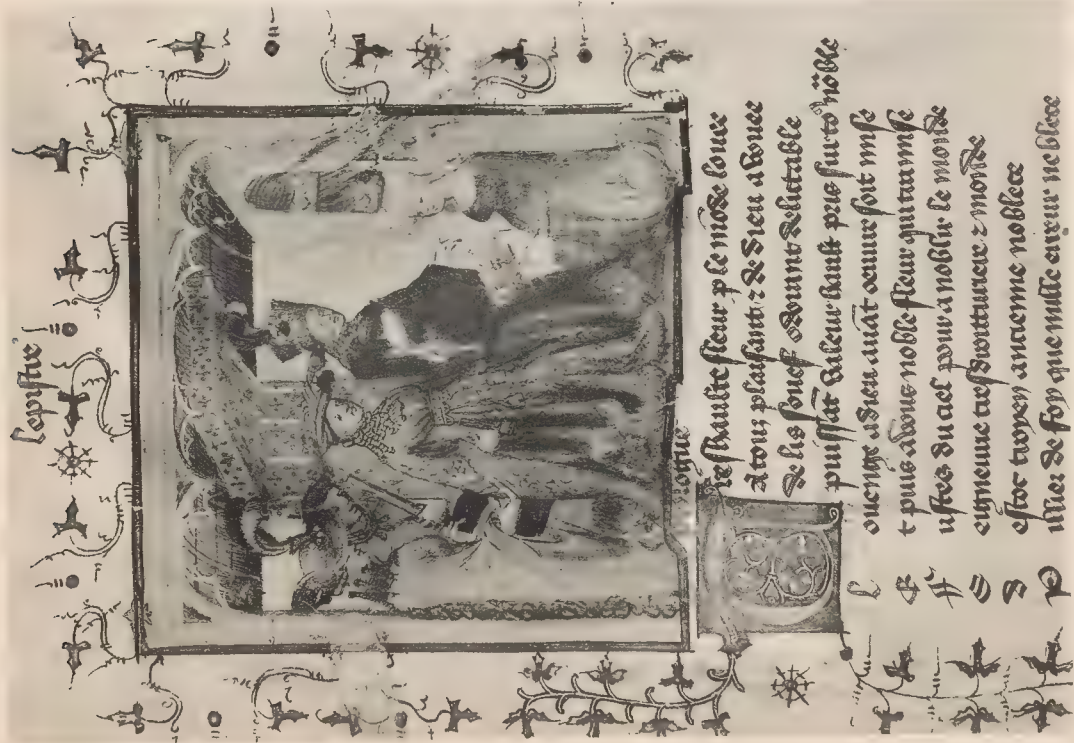 Lepistre
rologue
Tres haulte fleur p le mõde louee
A tous plaisant z de dieu advouee
De lis souef odorant delitable
puissãt valeur hault pris sur tout nõble
Louenge a dieu avãt oeuvre soit mise
Et puis a vous noble fleur qui transmise
Fustes du ciel pour anoblir le monde
Seigneurie tres droituriere z monde
Destoc troyen ancienne noblece
Pillier de foy que nulle erreur ne blece